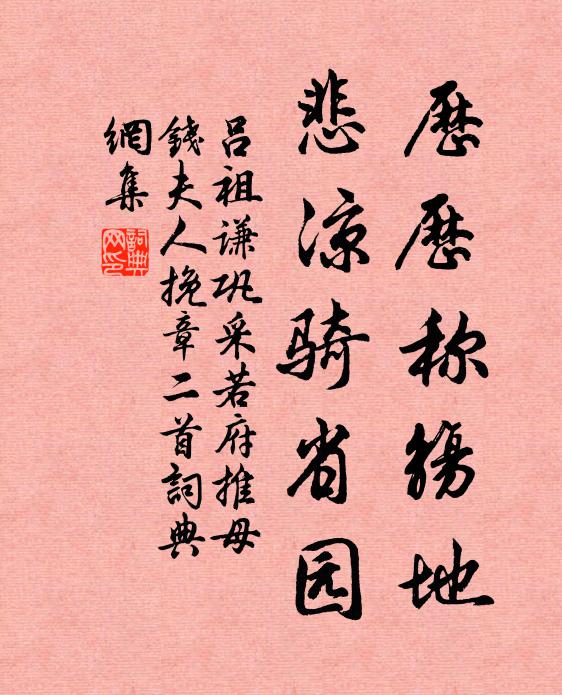 歷歷称觴地
悲凉骑省园
呂祖谦巩采若府推母
錢夫人挽章二首詞典
網集
詞典網印